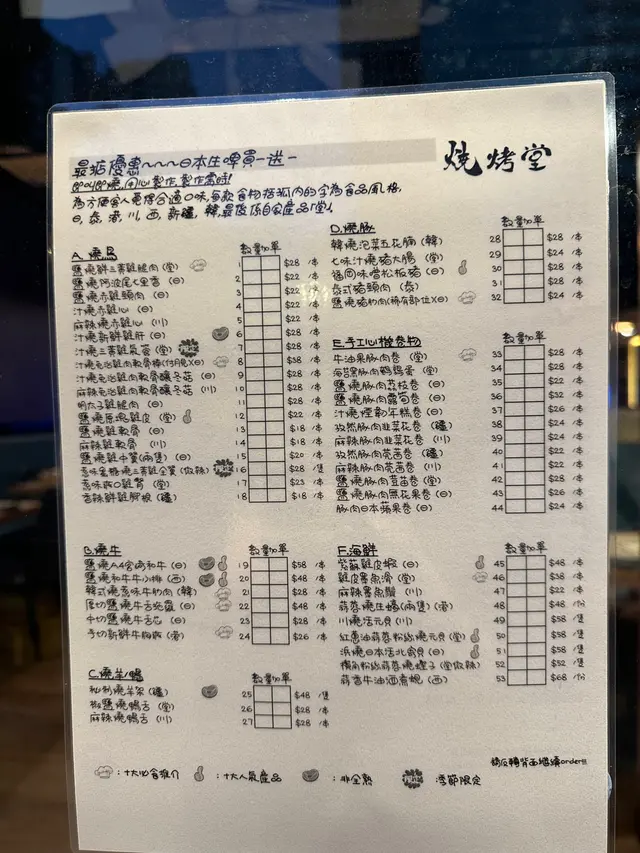 最抵優惠~~~日本生啤買一送一
燒烤堂
即叫即燒,用心製作,製作需時!
為方便客人選擇合適口味,每款食物括弧內的字為食品風格,
日,泰,港,川,西,新疆,韓,最後係自家產品「堂」.
A.燒鳥
數量 加單
鹽燒鮮三黃雞腿肉(堂) 1 $28 /本
鹽燒阿波尾七里香(日) 2 $22 /本
鹽燒赤雞頸肉(日) 3 $22 /本
汁燒赤雞心(日) 4 $22 /本
麻辣燒赤雞心(川) 5 $22 /本
汁燒新鮮雞肝(日) 6 $28 /本
汁燒三黃雞(堂) 7 $28 /本
汁燒免治雞肉軟骨棒(日) 8 $38 /本
汁燒免治雞肉軟骨釀冬菇(日) 9 $28 /本
麻辣免治雞肉軟骨釀冬菇(川) 10 $28 /本
明太子雞腿肉(日) 11 $28 /本
鹽燒原塊雞皮(堂) 12 $22 /本
鹽燒雞軟骨(日) 13 $18 /本
麻辣雞軟骨(川) 14 $18 /本
鹽燒雞中翼(兩隻)(日) 15 $20 /本
惹味蜜糖燒三黃雞全翼(微辣) 16 $28 /隻
惹味爽口雞腎(堂) 17 $23 /本
香辣鮮雞腳根(疆) 18 $18 /本
B.燒牛
數量 加單
鹽燒A4宮崎和牛(日) 19 $58 /本
鹽燒和牛牛小排(西) 20 $48 /本
韓式燒惹味牛肋肉(韓) 21 $28 /本
厚切鹽燒牛舌(日) 22 $48 /本
中切鹽燒牛舌芯(日) 23 $28 /本
手切新鮮牛胸爽(港) 24 $26 /本
C.燒羊/鴨
數量 加單
秘制燒羊架(疆) 25 $48 /隻
椒鹽燒鴨舌(堂) 26 $28 /本
麻辣燒鴨舌(川) 27 $28 /本
D.燒豚
數量 加單
韓燒泡菜五花腩(韓) 28 $28 /本
七味汁燒豬大腸(堂) 29 $24 /本
福岡味噌松板豬(日) 30 $28 /本
泰式豬頸肉(泰) 31 $28 /本
鹽燒豬肋肉(稀有部位)(日) 32 $24 /本
E.手工心機卷物
數量 加單
牛油果豚肉卷(堂) 33 $28 /本
海苔黑豚肉鵪鶉蛋(堂) 34 $28 /本
鹽燒豚肉荔枝卷(日) 35 $22 /本
鹽燒豚肉露筍卷(日) 36 $32 /本
汁燒煙韌年糕卷(日) 37 $26 /本
孜然豚肉韭菜花卷(疆) 38 $24 /本
麻辣豚肉韭菜花卷(川) 39 $24 /本
孜然豚肉芫茜卷(疆) 40 $22 /本
麻辣豚肉芫茜卷(川) 41 $22 /本
鹽燒豚肉萵苣卷(堂) 42 $28 /本
鹽燒豚肉無花果卷(日) 43 $26 /本
豚肉日本蘋果卷(日) 44 $24 /本
F.海鮮
數量 加單
紫蘇雞皮蝦(日) 45 $48 /本
雞皮墨魚滑(堂) 46 $38 /本
麻辣墨魚鬚(川) 47 $22 /本
蒜蓉燒生蠔(兩隻)(港) 48 $48 /份
川燒活元貝(川) 49 $58 /隻
紅蔥油蒜蓉粉絲燒元貝(堂) 50 $58 /隻
浜燒日本活北寄貝(日) 51 $58 /隻
櫻角粉絲蒜蓉燒蟶子(堂微辣) 52 $52 /隻
蒜香牛油酒煮蜆(西) 53 $68 /份
請反轉背面繼續order!!!
:十大必食推介 :十大人氣產品 :非全熟 季節限定 :季節限定